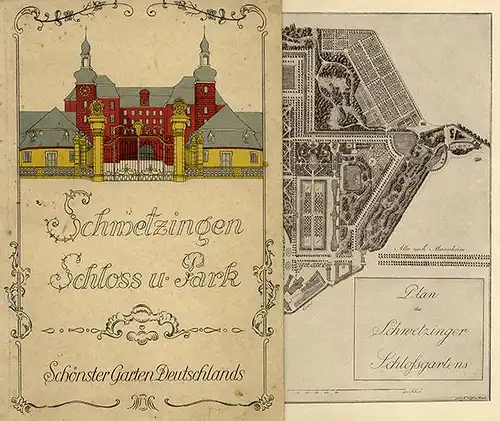 Schwetzingen
Schloss u. Park
Schönster Garten Deutschlands
Allee nach Mannheim
Plan
des
Schwetzinger
Schloßgartens